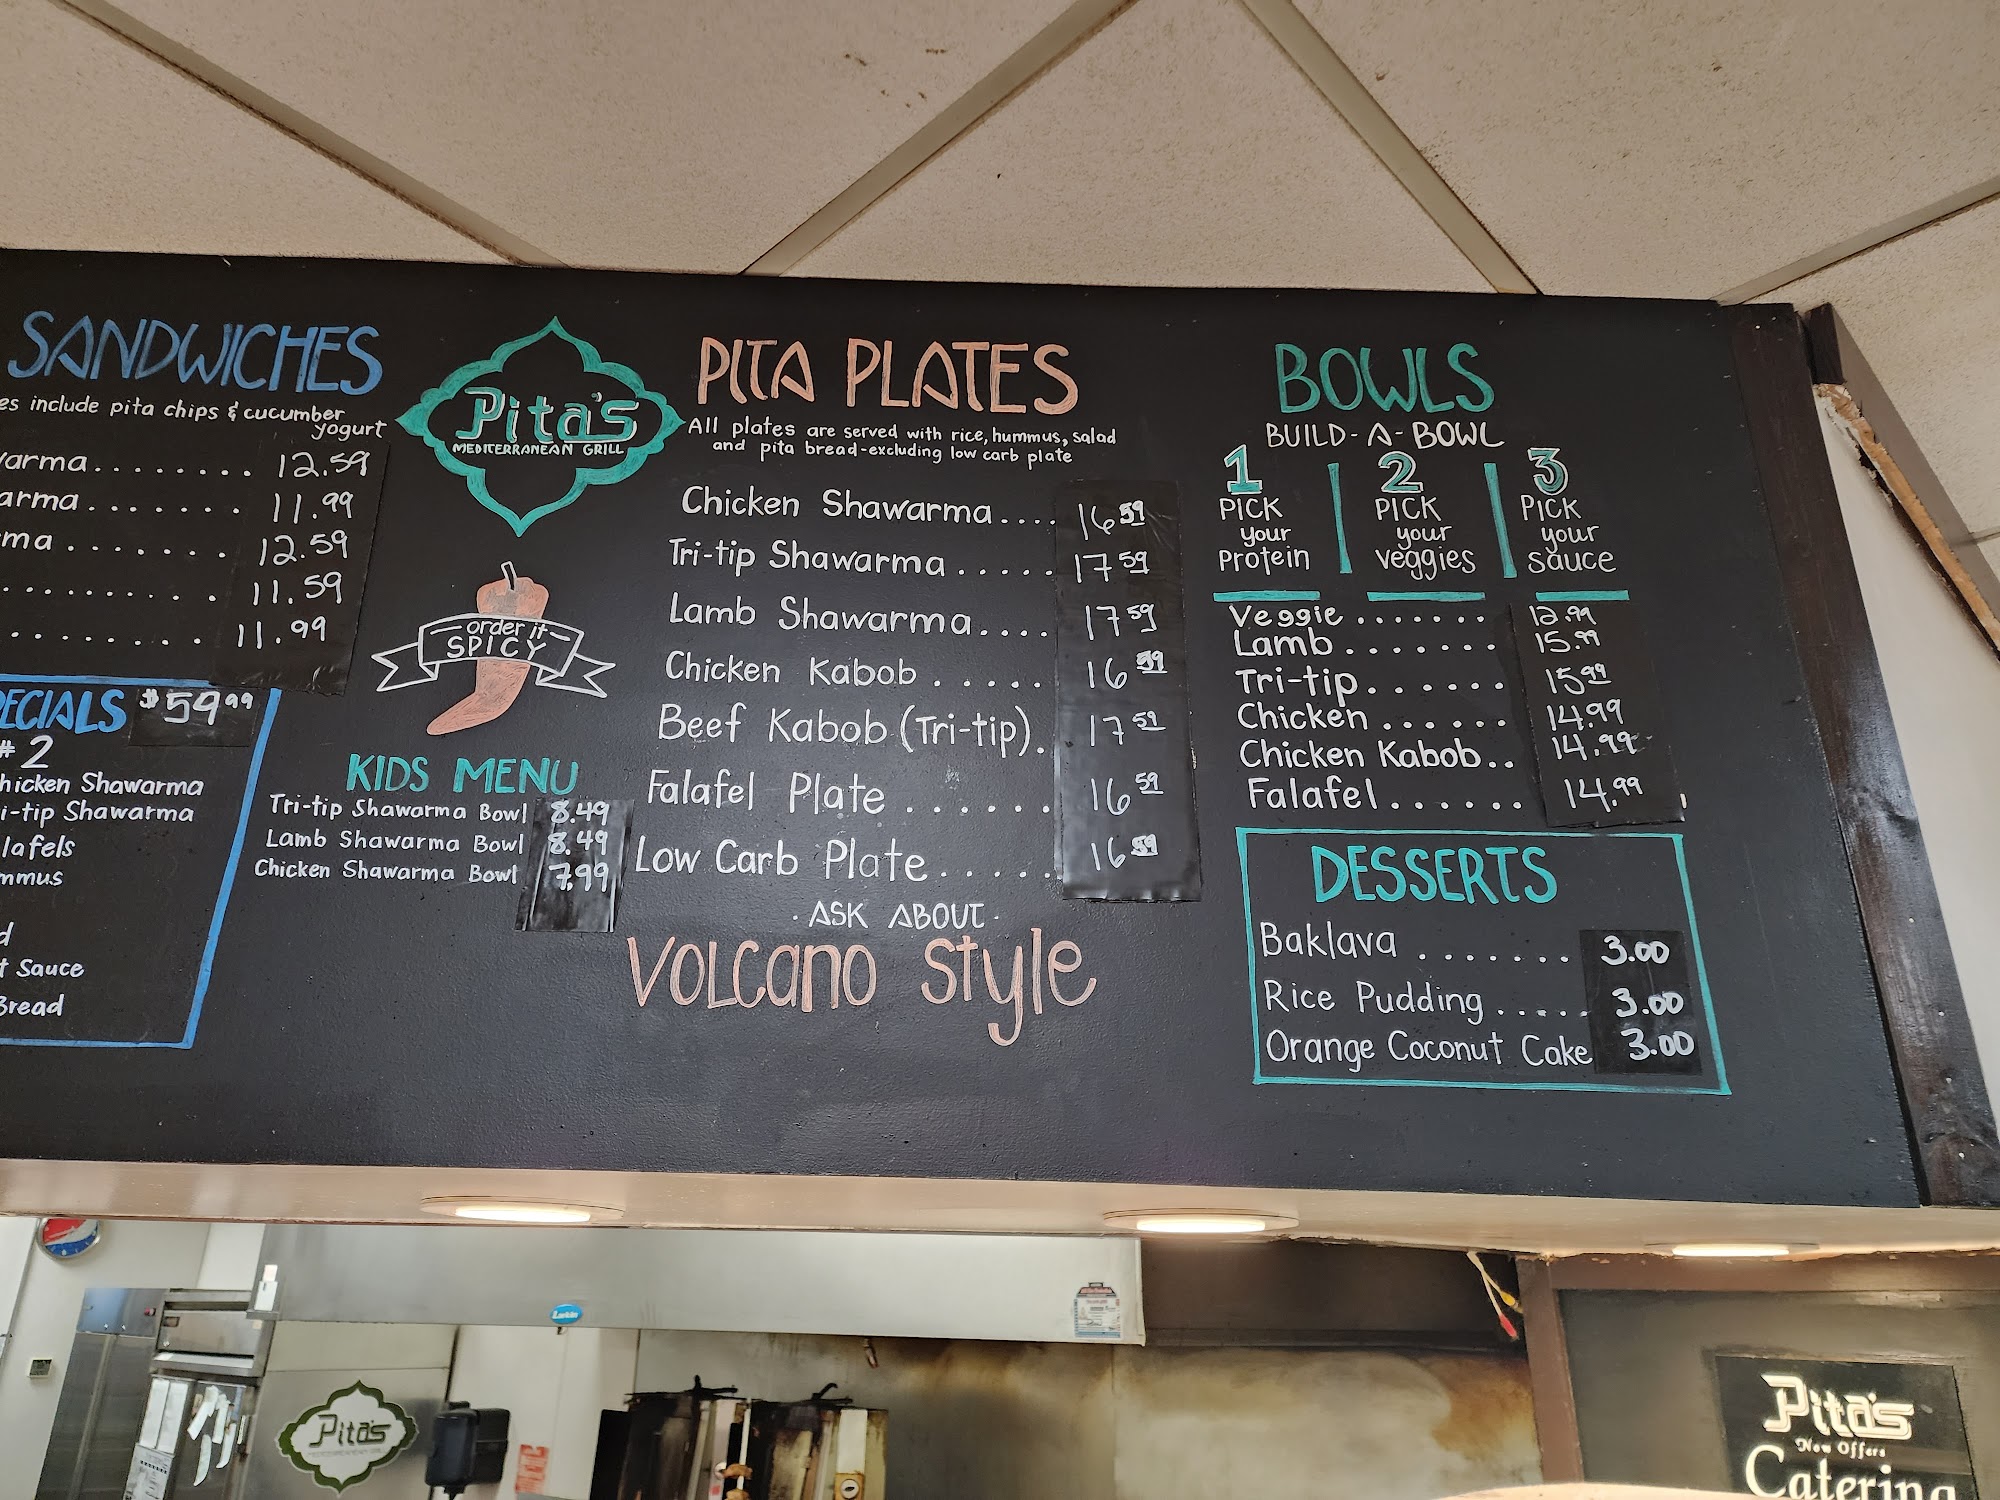 SANDWICHES
es include pita chips & cucumber
yogurt
warma........ 12.59
arma....... 11.99
ma....... 12.59
.......... 11.59
......... 11.99
PECIALS $59.99
#2
hicken Shawarma
i-tip Shawarma
lafels
mmus
d
t Sauce
Bread
Pita's
MEDITERRANEAN GRILL
order it
SPICY
KIDS MENU
Tri-tip Shawarma Bowl 8.49
Lamb Shawarma Bowl 8.49
Chicken Shawarma Bowl 7.99
PITA PLATES
All plates are served with rice, hummus, salad
and pita bread-excluding low carb plate
Chicken Shawarma.... 16 59
Tri-tip Shawarma..... 17 59
Lamb Shawarma.... 17 59
Chicken Kabob..... 16 59
Beef Kabob (Tri-tip). 17 59
Falafel Plate...... 16 59
Low Carb Plate..... 16 59
· ASK ABOUT ·
VOLCANO Style
BOWLS
BUILD-A-BOWL
1 PICK your Protein
2 PICK your veggies
3 PICK your sauce
Veggie....... 12.99
Lamb....... 15.99
Tri-tip...... 15 99
Chicken...... 14.99
Chicken Kabob.. 14.99
Falafel...... 14.99
DESSERTS
Baklava....... 3.00
Rice Pudding..... 3.00
Orange Coconut Cake 3.00
Larkin
Pita's
MEDITERRANEAN GRILL
Pita's
Now Offers
Catering